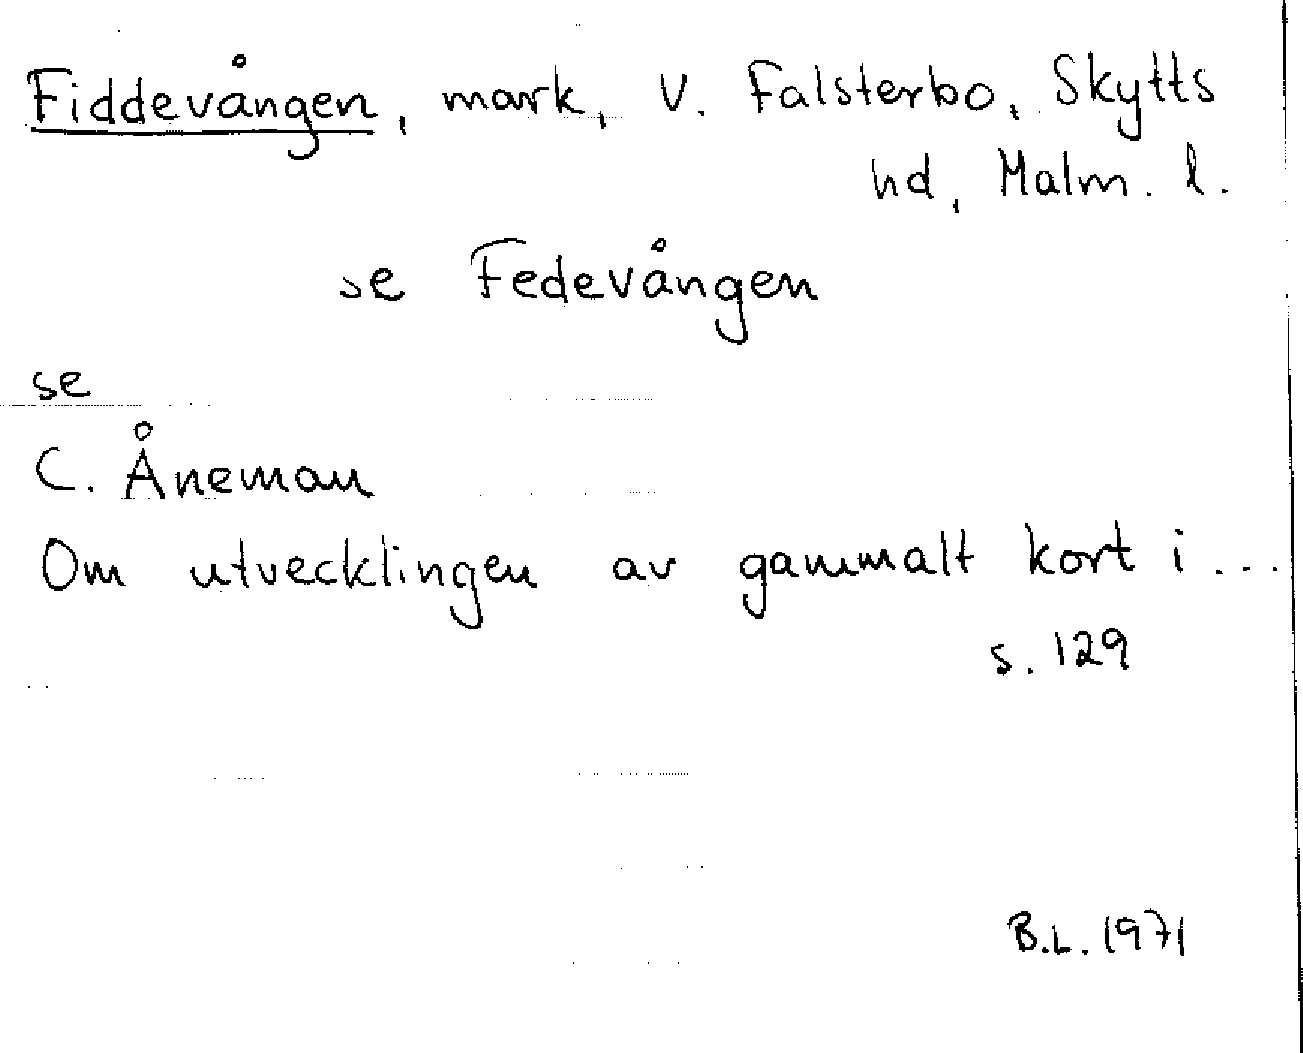 Fiddevången, mark, V. Falsterbo, Skytts
hd, Malm. l.
se Fedevången
se
C. Åneman
Om utvecklingen av gammalt kort i ...
s. 129
B.L. 1971